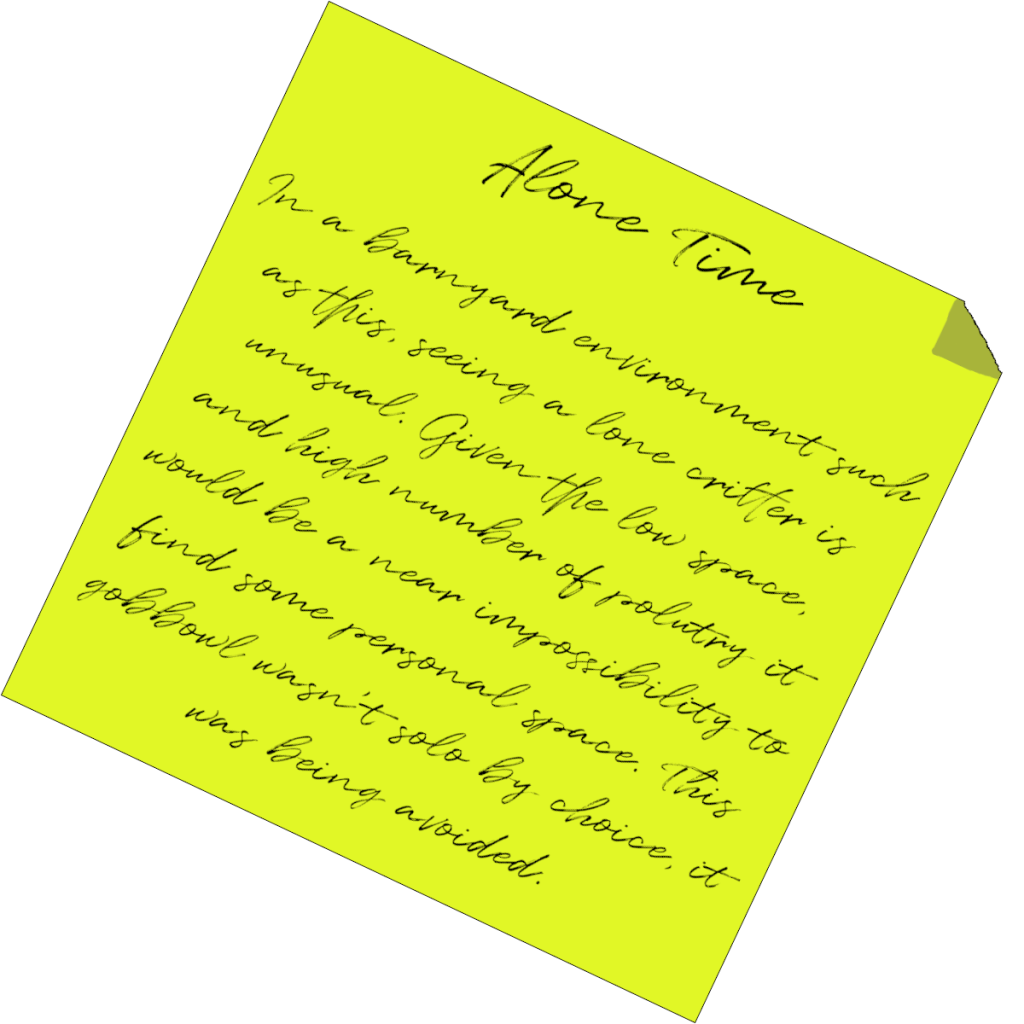 Alone Time
In a barnyard environment such
as this, seeing a lone critter is
unusual. Given the low space,
and high number of polutry it
would be a near impossibility to
find some personal space. This
gobbowl wasn't solo by choice, it
was being avoided.